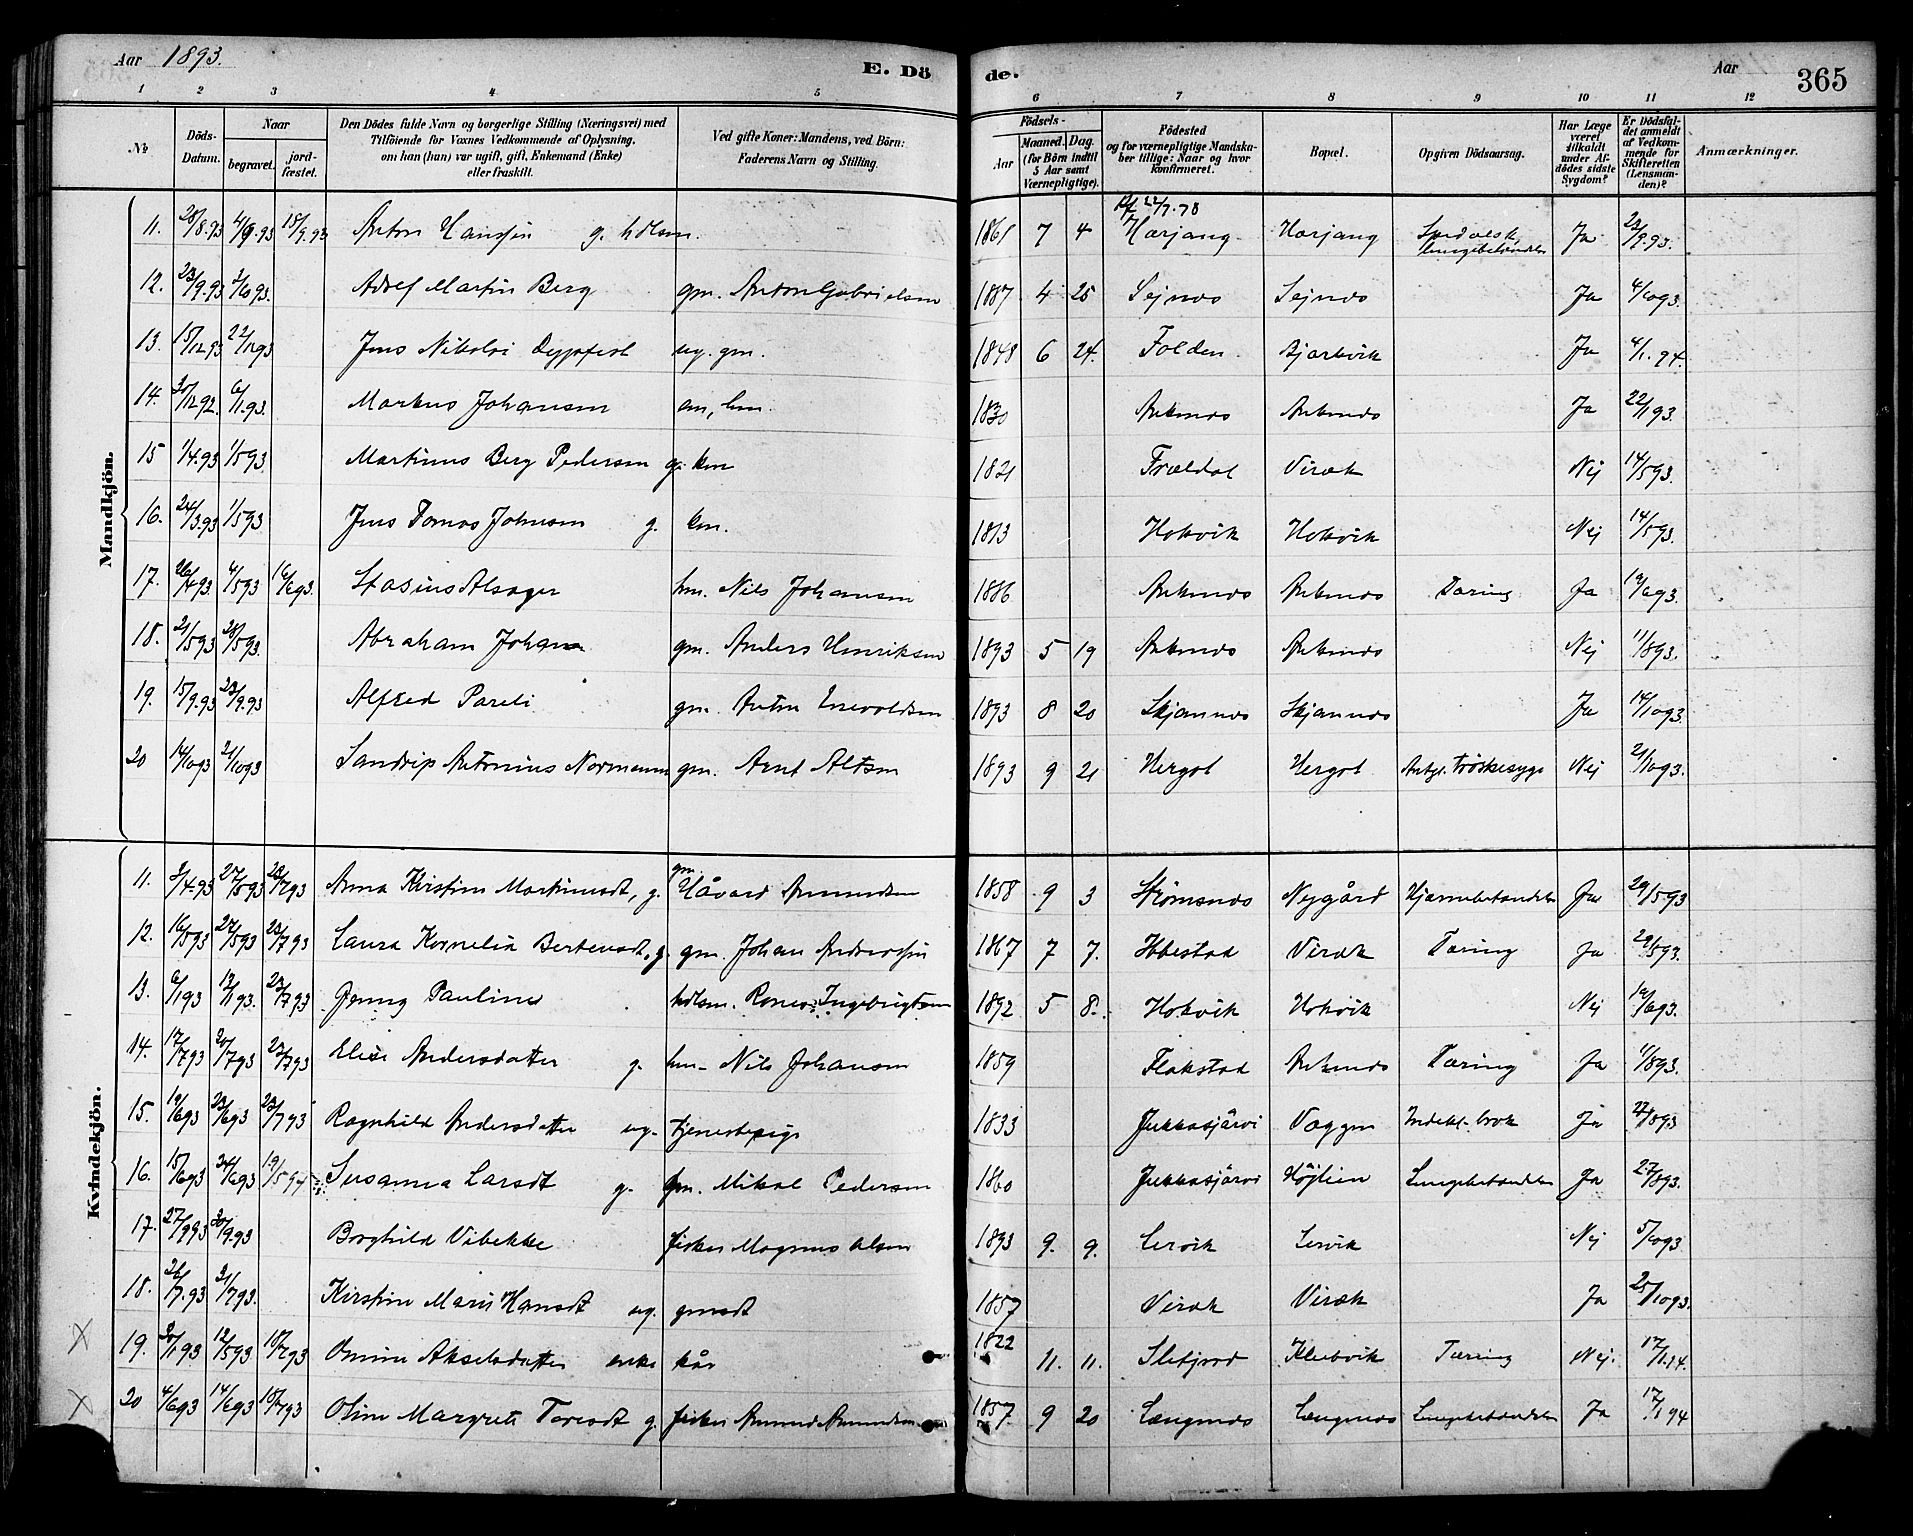 Aar 1893.
E. Dö
de.
Aar
365
1 2 3 4 5
6 7 8 9 10 11 12
No
Döds-Datum.
Naar
begravet.
jordfæstet.
Den Dödes fulde Navn og borgerlige Stilling (Næringsvei) med
Tilföiende for Voxnes Vedkommende af Oplysning,
om han (hun) var ugift, gift, Enkemand (Enke)
eller fraskilt.
Ved gifte Koner: Mandens, ved Börn:
Faderens Navn og Stilling.
Födsels-
Aar
Maaned. Dag.
(for Börn indtil
5 Aar samt
Værnepligtige).
Födested
og for værnepligtige Mandska-
ber tillige: Naar og hvor
konfirmeret.
Bopæl.
Opgiven Dödsaarsag.
Har Læge
været
tilkaldt
under Af-
dödes sidste
Sygdom?
Er Dödsfal-
det anmeldt
af Vedkom-
mende for
Skifteretten
(Lensman-
den)?
Anmærkninger.
Mandkjön.
11. 28/8.93 4/9.93 18/9.93 Anton Hansen g. 1861 7 4 Harjang Harjang Ja
12. 23/9.93 Adolf Martin Berg gm. Anton Gabrielsen 1887 4 25 Sejnes Sejnes Ja 4/1093.
13. 15/12.93 22/1293 Jens Nikolai ug. gm. 1848 6 24. Folden Bjerkvik Ja 4/1.94.
14. 30/12 92. 6/1.93. Markus Johansen 1830 Ankenes Ankenes Ja 22/193.
15 1/4.93 1/593. Martinus Berg Pedersen g. km 1821 Trældal Virak Nej 14/593.
16. 24/3.93 1/593 Jens Tomas Johnsen g. km. 1813 Hokvik Hokvik Nej 14/593.
17. 26/493. 4/593 16/693. Stasius Alsager hm. Nils Johansen 1886 Ankenes Ankenes Tæring Ja 19/693.
18. 21/593 28/593. Abraham Johan gm. Anders Henriksen 1893 5 19 Ankenes Ankenes Nej 11/893.
19. 15/9.93 23/9.93 Alfred Pareli gm. Anton Enevoldsen 1893 8 20 Skjannes Skjannes Ja 14/1093.
20 14/1093 21/1093 Antonius Normann gm. Arnt Altsen 1893 9 21 Hergot Hergot Nej 21/1093.
Kvindekjön.
11. 3/4.93 27/593 23/793 Anna Kirstine Martinusdt, g. gm. Håvard Amundsen 1858 9 3 Strömsnes Nygård Hjærnebetændelse Ja 29/593
12. 16/593 27/593 23/793 Laura Kornelia Bertensdt, g. gm. Johan Andreassen 1867 7 7. Ibbestad Virak Tæring Ja 29/593.
13. 6/193 12/193. 23/793 Jenny Pauline Ingebrigtsen 1892 5 8. Hokvik Hokvik Nej 19/693.
14. 17/793 20/793 23/793 Elise Andersdatter g. hm. Nils Johansen 1859 Flakstad Ankenes Tæring Ja 11/893.
15. 19/693 23/693 23/793 Ragnhild Andersdatter ug. tjenestepige 1833 Jukkasjärvi Ja 27/893
16. 15/693 24/693 19/594 Susanna Larsdt g. gm. Mikal Pedersen 1860 Jukkasjärvi Höjlien Lungebetændelse Ja 27/893.
17. 27/993 30/9.93 Borghild Vibekke fisker Magnus Olsen 1893 9. 9. Lervik Lervik Nej 5/1093.
18. 26/7.93 31/793. Kirstine Marie Hansdt ug. gmsdt 1857 Virak Virak Ja 25/1093.
19. 30/193 12/593 18/793 Akselsdatter enke kår 1822 11. 11. Slefjord Klubvik Tæring Nej. 17/1.94.
20 4/693 14/693 18/793 Oline Margrete Toresdt g. fisker Amund Amundsen 1857. 9 20 Længenes Længenes Lungebetændelse Ja 17/1 94